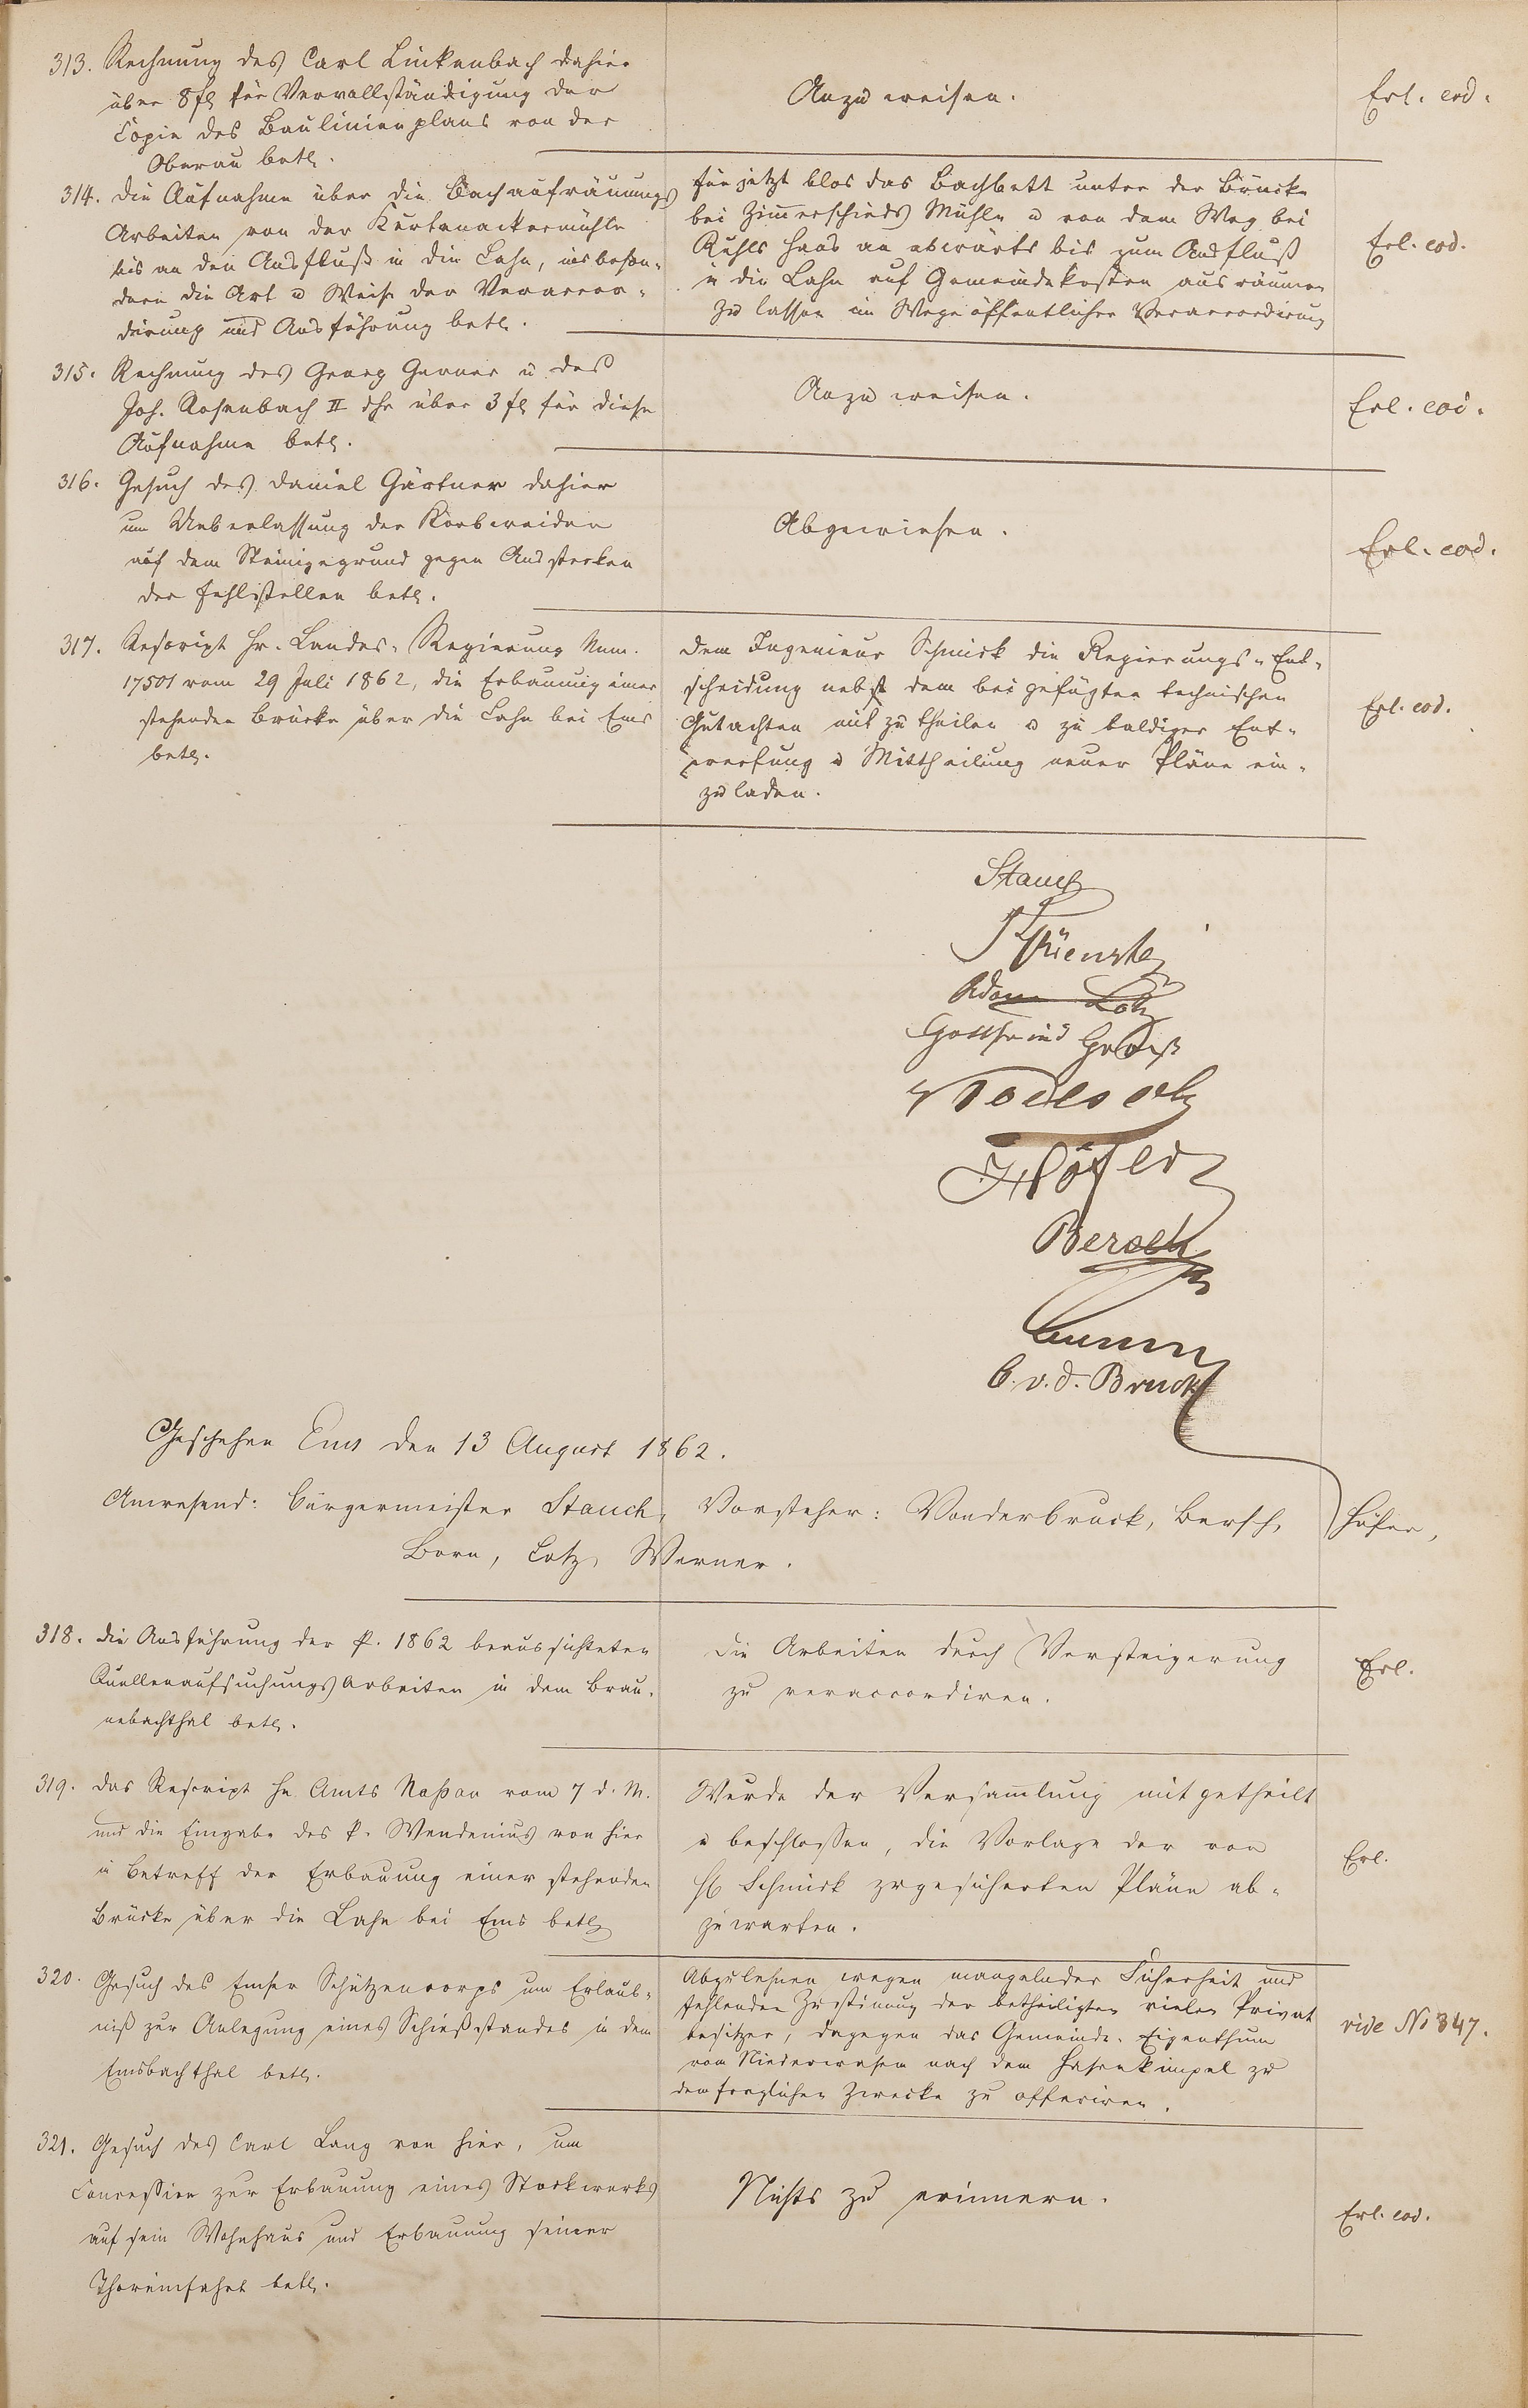 313. Rechnung des Carl Linkenbach dahier
über 8 fl für Vervollständigung der
Copie des Baulinienplans von der
Oberau betr.
Anzuweisen.
Erl. eod.
314. die Aufnahme über die Bachaufräumungs
Arbeiten von der
bis an den Ausfluß in die Lahn, insbeson-
dere die Art u Weise der Veraccor-
dirung und Ausführung betr.
für jetzt blos das Bachbett unter der Brücke
bei Zimerschieds Mühle u von dem Weg bei
Ruhls Haus an abwärts bis zum Ausfluß
in die Lahn auf Gemeindekosten ausräumen
zu lassen im Wege öffentlicher Veraccordirung
Erl. eod.
315. Rechnung des Georg Gerner u des
Joh. Rosenbach II dhr über 3 fl für diese
Aufnahme betr.
Anzuweisen.
Erl. eod.
316. Gesuch des Daniel Gärtner dahier
um Ueberlassung der Korbweiden
auf dem Steinigegrund gegen Ausstecken
der Fehlstellen betr.
Abgewiesen.
Erl. eod.
317. Rescript Hr. Landes-Regierung Num.
17501 vom 29 Juli 1862, die Erbauung einer
stehenden Brücke über die Lahn bei Ems
betr.
dem Ingenieur Schmick die Regierungs-Ent-
scheidung nebst dem beigefügten technischen
Gutachten mitzutheilen u zu baldiger Ent-
werfung u Mittheilung neuer Pläne ein-
zuladen.
Erl. eod.
Stauch
Adam Lotz
Gottfried
Höfer
Bersch
C. v. d. Bruck
Geschehen Ems den 13 August 1862.
Anwesend: Bürgermeister Stauch, Vorsteher: Vonderbruck, Bersch, Höfer,
Born, Lotz, Werner.
318. die Ausführung der p. 1862 beaufsichteten
Quellenaufsuchungs Arbeiten in dem Brau-
nebachthal betr.
die Arbeiten durch Versteigerung
zu veraccordiren.
Erl.
319. das Rescript Hr. Amts Naßau vom 7 d. M.
und die Eingabe des p. Wendenius von hier
in Betreff der Erbauung einer stehenden
Brücke über die Lahn bei Ems betr
Wurde der Versamlung mitgetheilt
u beschlossen, die Vorlage der von
H Schmick zugesicherten Pläne ab-
zuwarten.
Erl.
320. Gesuch des Emser Schützencorps um Erlaub-
niß zur Anlegung eines Schießstandes in dem
Emsbachthal betr.
Abzulehnen wegen mangelnder Sicherheit und
fehlenden Zustimung der betheiligten vielen Privat
besitzer, dagegen das Gemeinde-Eigenthum
von Niederwiesen nach dem Hasenkimpel zu
dem fraglichen Zwecke zu offeriren.
vide No 347.
321. Gesuch des Carl Lang von hier, um
Concession zur Erbauung eines Stockwerks
auf sein Wohnhaus und Erbauung seiner
Thoreinfahrt betr.
Nichts zu erinnern.
Erl. eod.